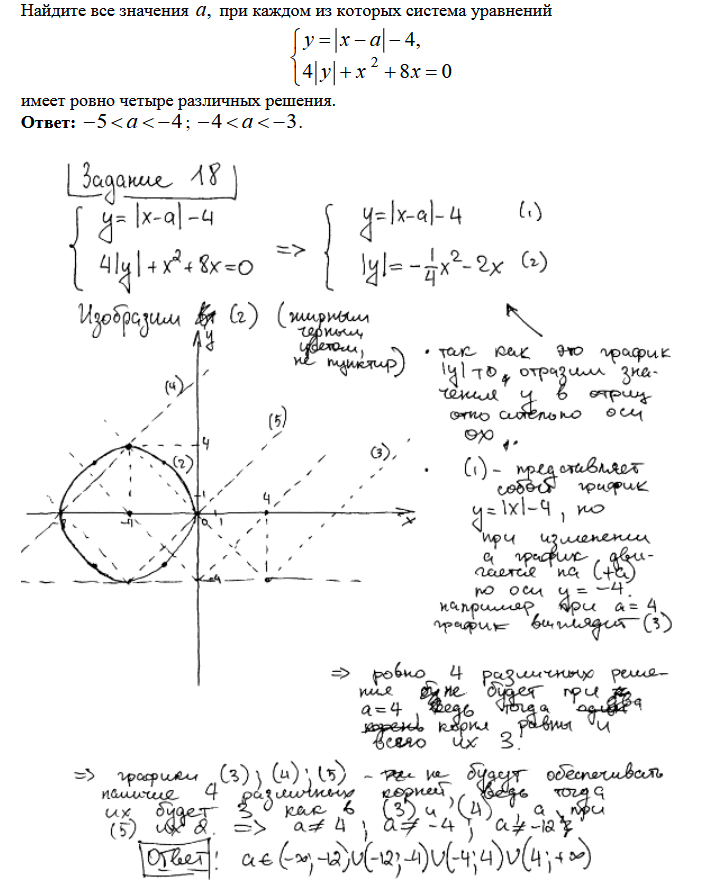 Найдите все значения a, при каждом из которых система уравнений
y = |x − a| − 4,
4|y| + x² + 8x = 0
имеет ровно четыре различных решения.
Ответ: −5 < a < −4; −4 < a < −3.
Задание 18
y = |x-a| -4
4|y| + x² + 8x = 0
=>
y = |x-a| -4 (1)
|y| = -1/4 x² - 2x (2)
Изобразим (2) (жирным
черным
цветом,
не пунктир)
y
(4)
(5)
(3)
(2)
4
1
4
-4
0
1
x
-4
• так как это график
|y| то, отразим зна-
чения y в отриц
относительно оси
ox.
• (1) - представляет
собой график
y = |x| -4, но
при изменении
a график дви-
гается на (+a)
по оси y = -4.
например при a = 4
график выглядит (3)
=> ровно 4 различных реше-
ние не будет при
a = 4 ведь тогда два
корня равны и
всего их 3.
=> графики (3); (4); (5) - не будут обеспечивать
наличие 4 различных корней, ведь тогда
их будет 3 как в (3) и (4), а при
(5) их 2. => a ≠ 4; a ≠ -4; a ≠ -12
Ответ: a ∈ (-∞; -12)∪(-12; -4)∪(-4; 4)∪(4; +∞)